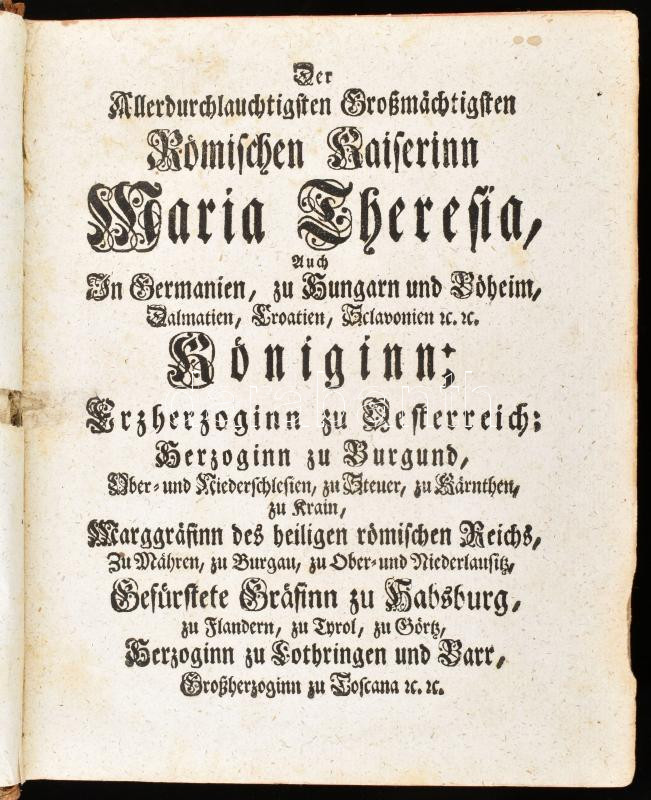 Der
Allerdurchlauchtigsten Großmächtigsten
Römischen Kaiserinn
Maria Theresia,
Auch
In Germanien, zu Hungarn und Böheim,
Dalmatien, Croatien, Sclavonien ꝛc. ꝛc.
Königinn;
Erzherzoginn zu Oesterreich;
Herzoginn zu Burgund,
Ober- und Niederschlesien, zu Steuer, zu Kärnthen,
zu Krain,
Marggräfinn des heiligen römischen Reichs,
Zu Mähren, zu Burgau, zu Ober- und Niederlausitz,
Gefürstete Gräfinn zu Habsburg,
zu Flandern, zu Tyrol, zu Görtz,
Herzoginn zu Lothringen und Barr,
Großherzoginn zu Toscana ꝛc. ꝛc.